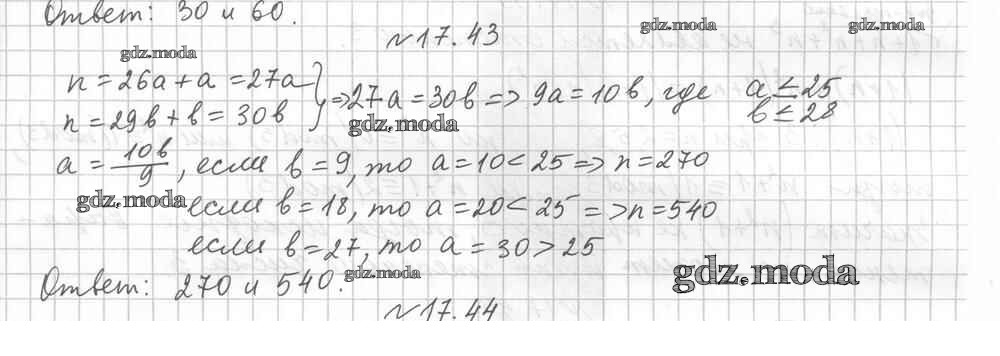 Ответ: 30 и 60.
№17.43
gdz.moda gdz.moda gdz.moda
n = 26a + a = 27a
n = 29b + b = 30b } => 27a = 30b => 9a = 10b, где a ≤ 25
b ≤ 28
gdz.moda
a = 10b/9, если b = 9, то a = 10 < 25 => n = 270
gdz.moda
если b = 18, то a = 20 < 25 => n = 540
если b = 27, то a = 30 > 25
Ответ: 270 и 540.
gdz.moda gdz.moda
№17.44